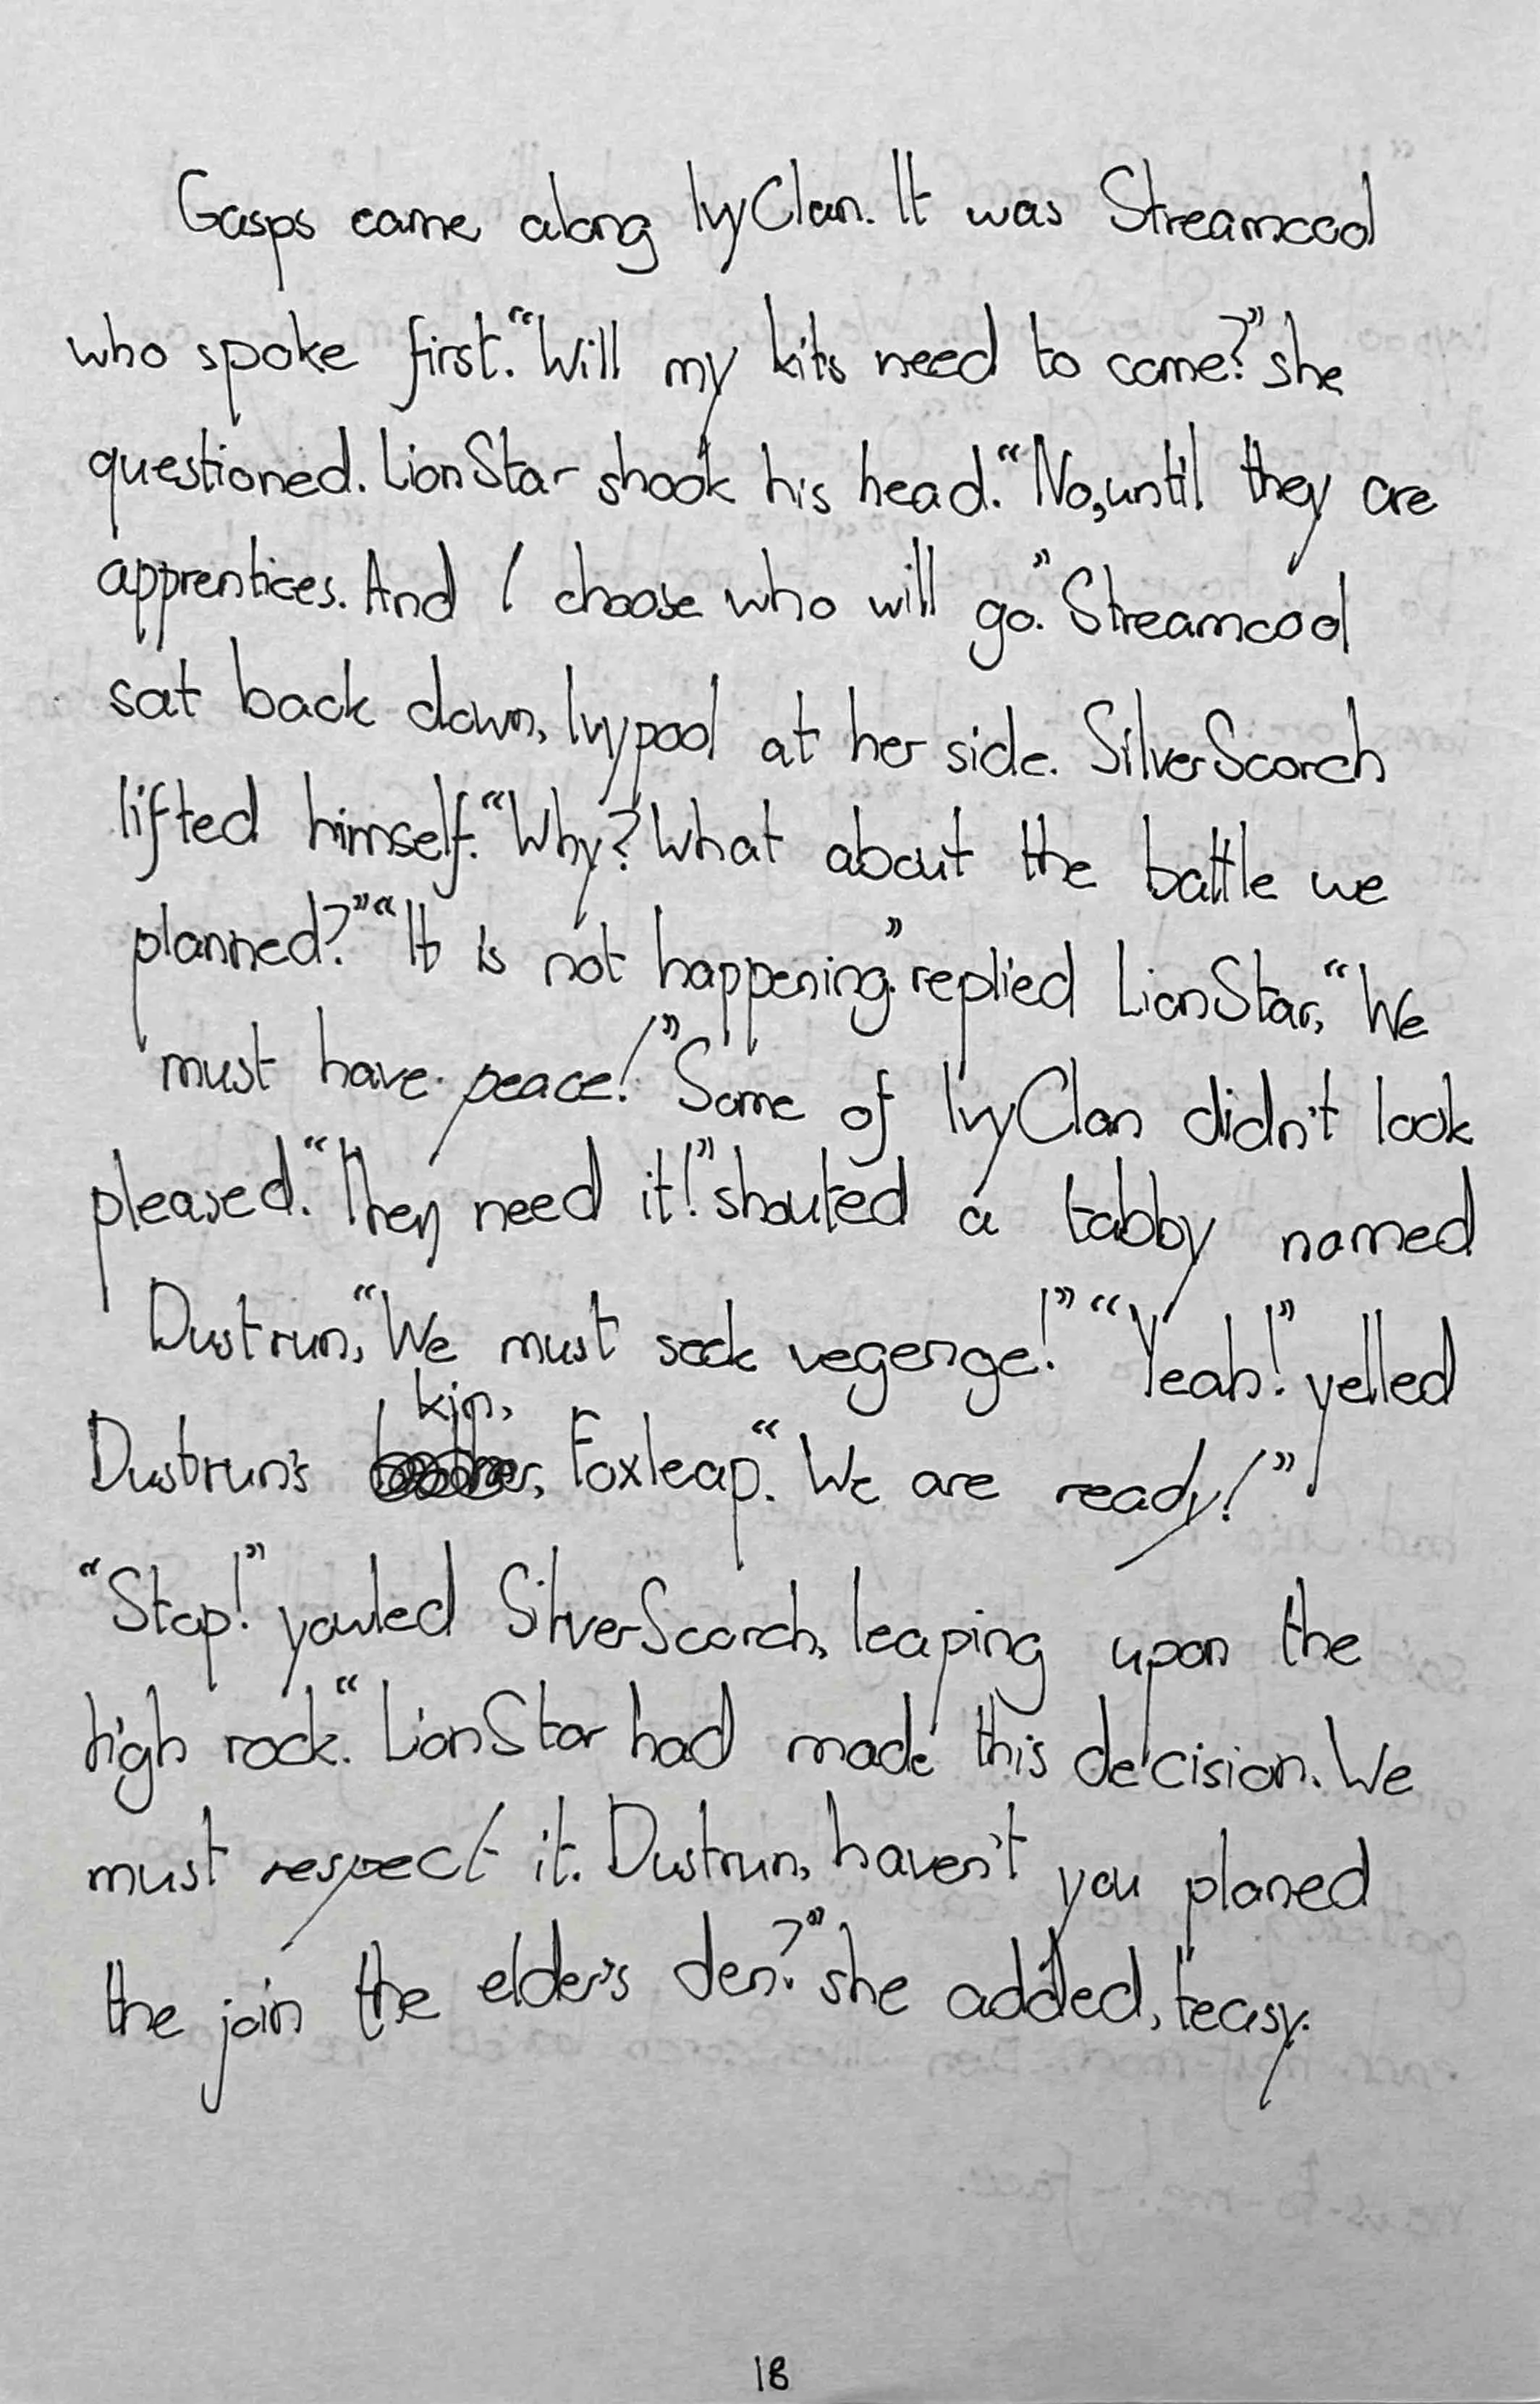 Gasps came along IvyClan. It was Streamcool
who spoke first. “Will my kits need to come?” she
questioned. LionStar shook his head. “No, until they are
apprentices. And I choose who will go.” Streamcool
sat back down, Ivypool at her side. SilverScorch
lifted himself. “Why? What about the battle we
planned?” “It is not happening.” replied LionStar, “We
must have peace!” Some of IvyClan didn't look
pleased. “They need it!” shouted a tabby named
Dustrun, “We must seek vegenge!” “Yeah!” yelled
Dustrun's kin, Foxleap. “We are ready!”
“Stop!” yowled SilverScorch, leaping upon the
high rock. “LionStar had made this decision. We
must respect it. Dustrun, haven't you planed
the join the elder's den?” she added, teasy.
18